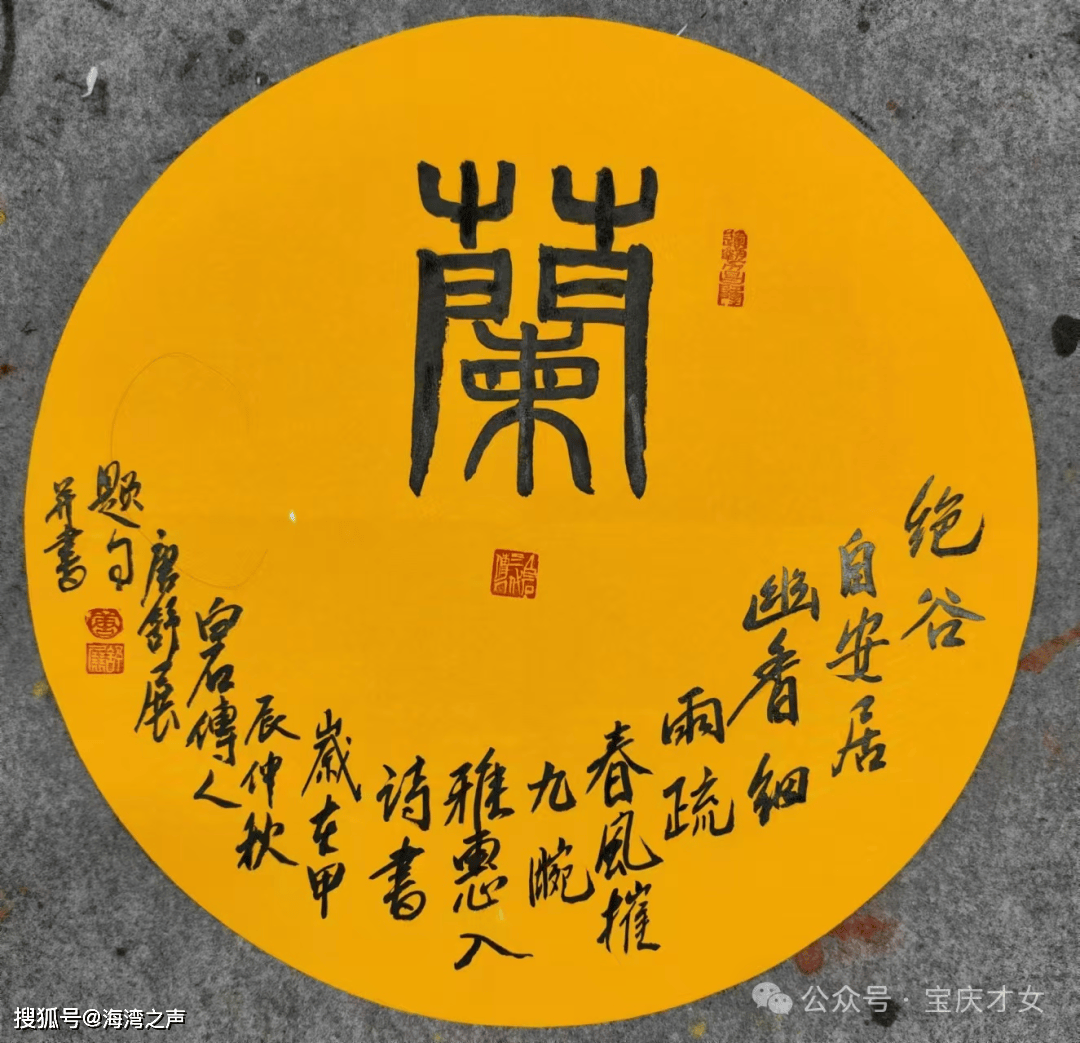 蘭
绝谷
自安居
幽香细
雨疏
春風摧
九畹
雅惠入
诗書
歲在甲
辰仲秋
白石傳人
唐舒展
题句
并書
唐
搜狐号@海湾之声
公众号 · 宝庆才女